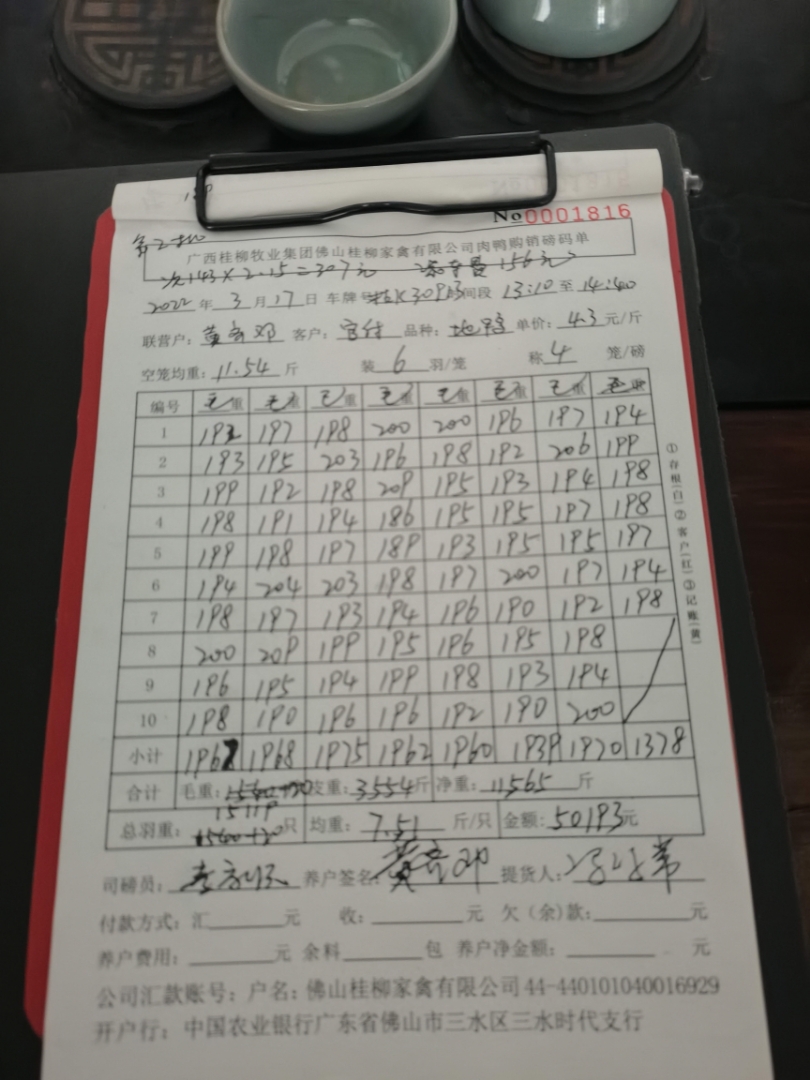 No0001816
广西桂柳牧业集团佛山桂柳家禽有限公司肉鸭购销磅码单
次143×2.15=307元 156元
2022年3月17日 车牌号 时间段 13:10至14:40
联营户: 黄 邓 客户: 品种: 单价: 4.3元/斤
空笼均重: 11.54斤 装6羽/笼 称4笼/磅
编号 毛重 毛重 毛重 毛重 毛重 毛重 毛重 毛重
1 192 197 198 200 200 196 197 194
2 193 195 203 196 198 192 206 199
3 199 192 198 209 195 193 194 198
4 198 191 194 186 195 195 197 198
5 199 198 197 189 193 195 195 197
6 194 204 203 198 197 200 197 194
7 198 197 193 194 196 190 192 198
8 200 209 199 195 196 195 198
9 196 195 194 199 198 193 194
10 198 190 196 196 192 190 200
小计 1967 1968 1975 1962 1960 1939 1970 1378
合计 毛重: 皮重: 3554斤 净重: 11565斤
15119
总羽重: 1540+20只 均重: 7.51斤/只 金额: 50193元
司磅员: 养户签名: 黄 邓 提货人:
付款方式: 汇 元 收: 元 欠(余)款: 元
养户费用: 元 余料 包 养户净金额: 元
公司汇款账号: 户名: 佛山桂柳家禽有限公司 44-440101040016929
开户行: 中国农业银行广东省佛山市三水区三水时代支行
①存根(白)②客户(红)③记账(黄)